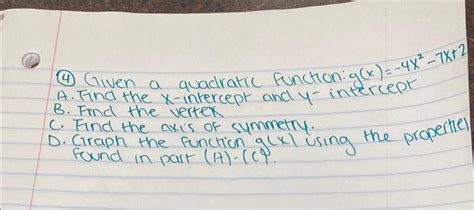 ④ Given a quadratic function: g(x) = -4x² - 7x + 2
A. Find the x-intercept and y-intercept
B. Find the vertex
C. Find the axis of symmetry.
D. Graph the function g(x) using the properties
found in part (A)-(C).